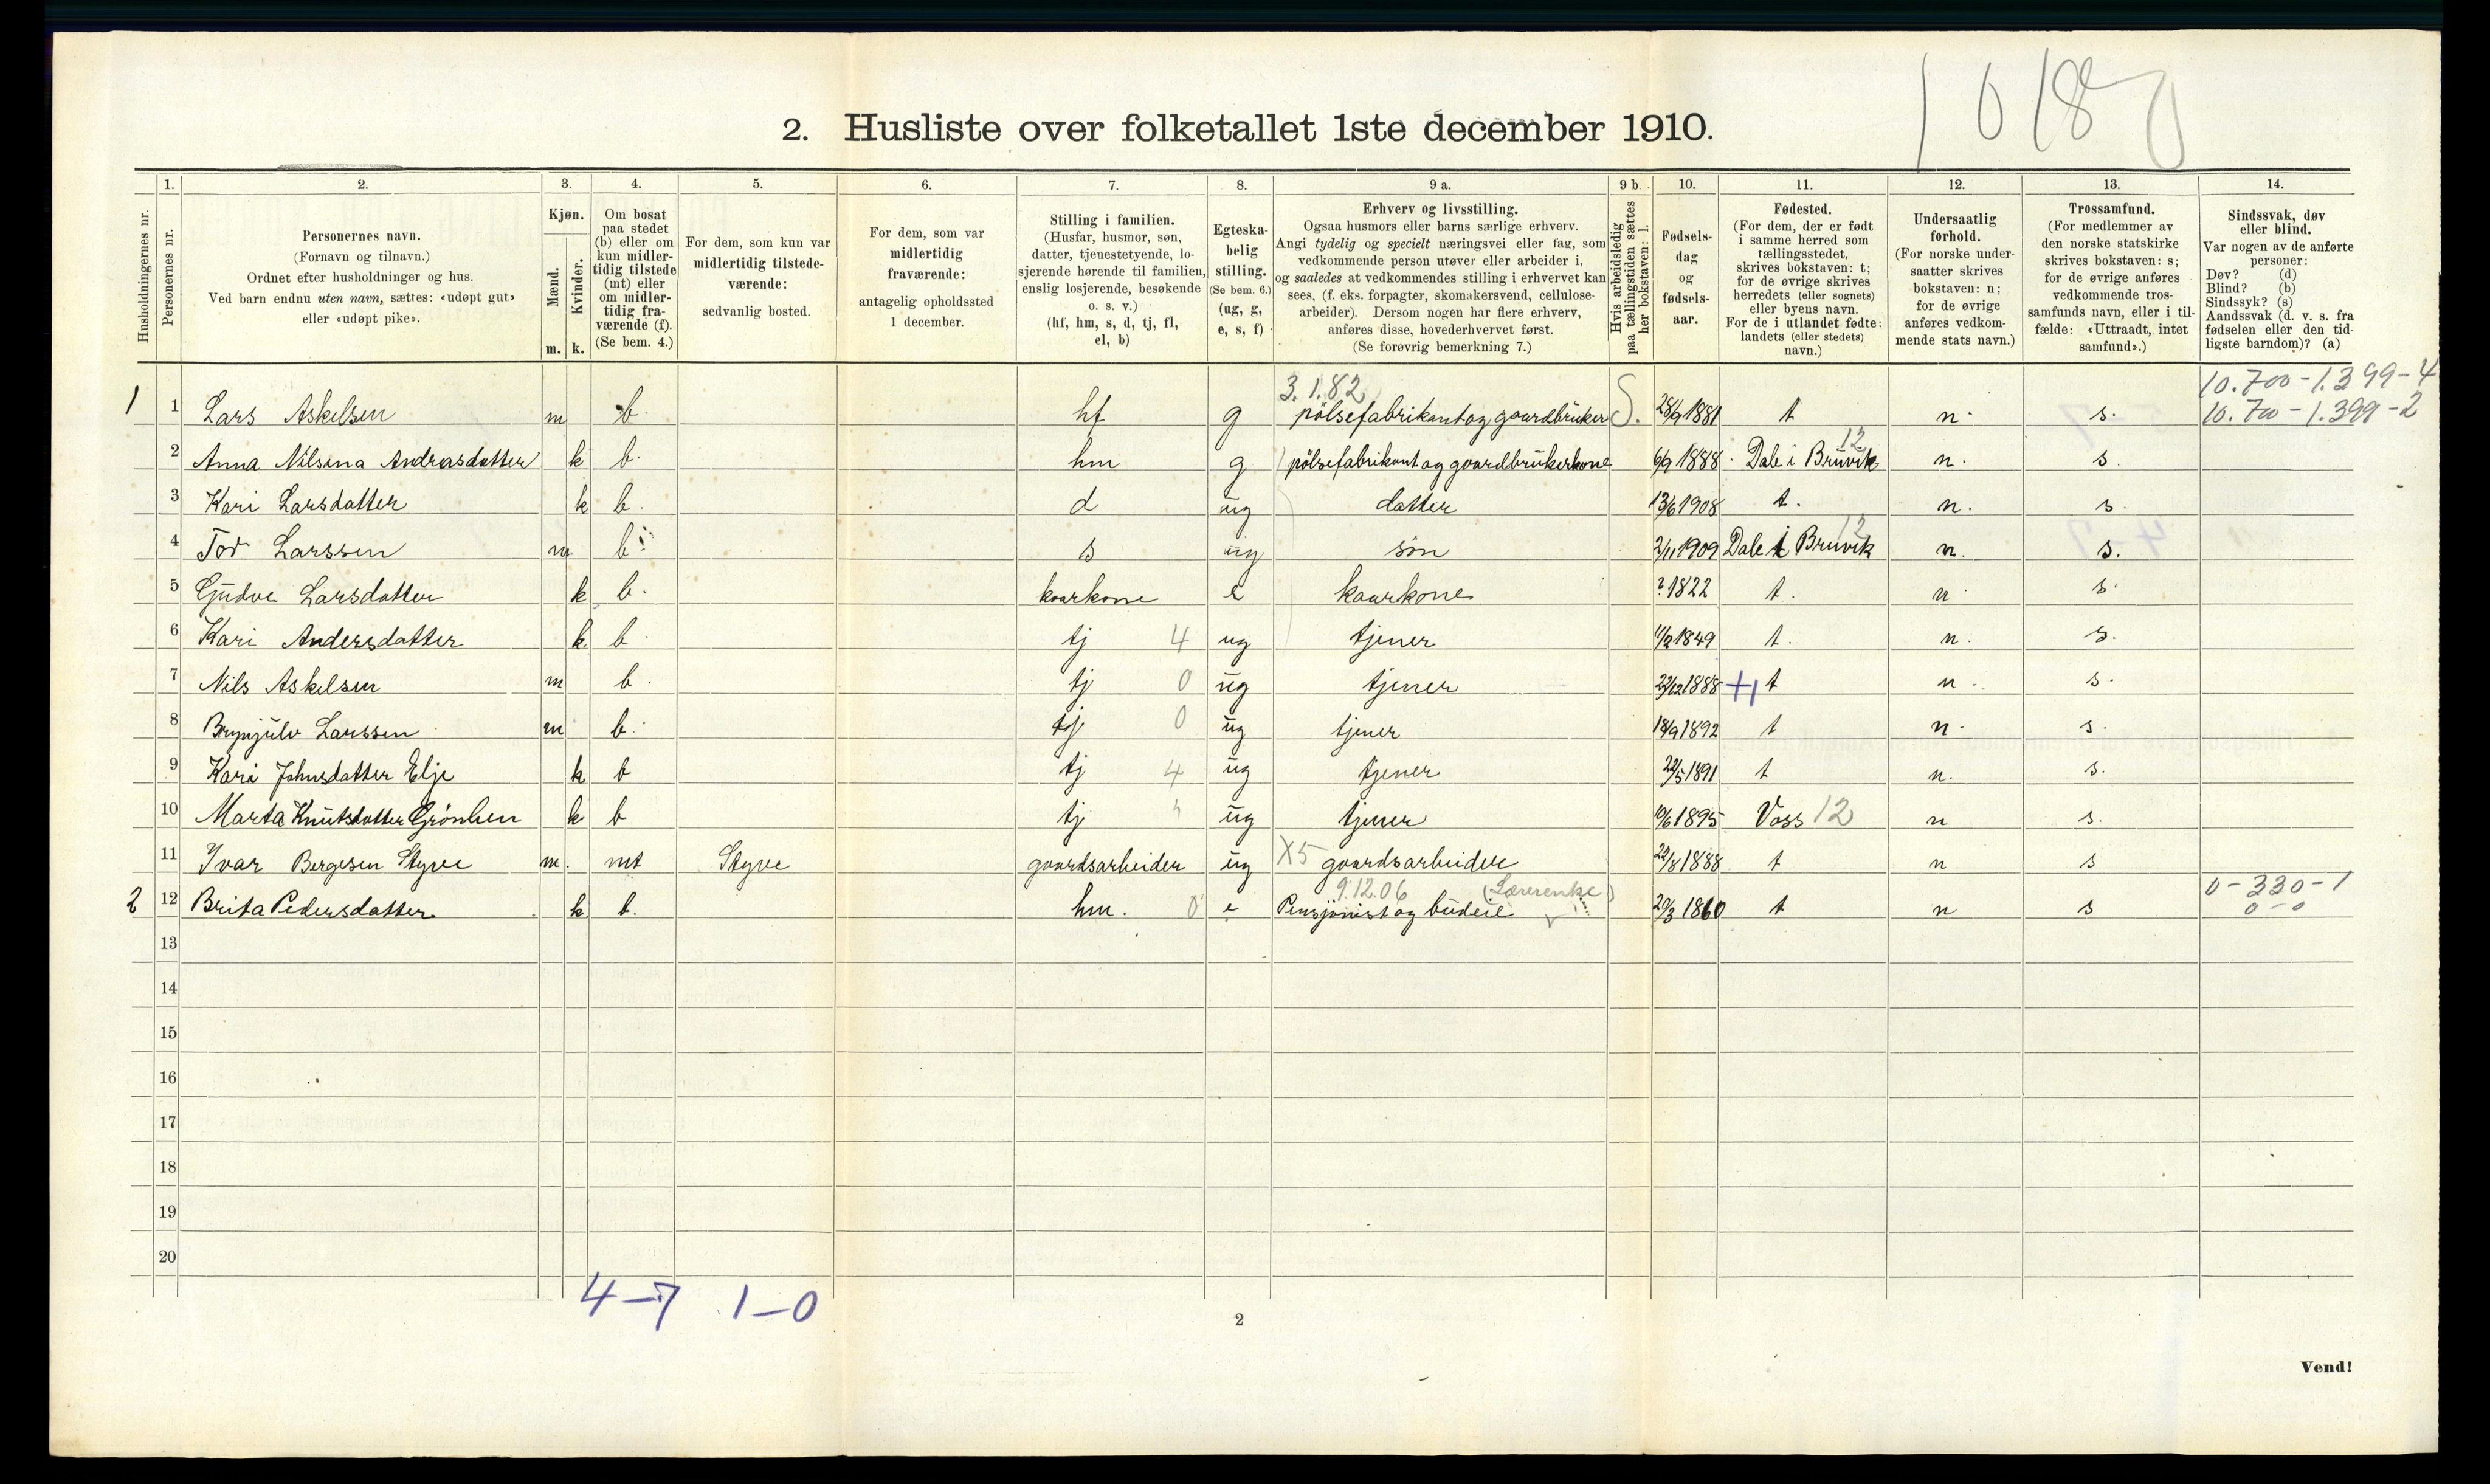 1 0 18
2. Husliste over folketallet 1ste december 1910.
Husholdningernes nr.
1. Personernes nr.
2. Personernes navn.
(Fornavn og tilnavn.)
Ordnet efter husholdninger og hus.
Ved barn endnu uten navn, sættes: «udøpt gut»
eller «udøpt pike».
3. Kjøn.
Mænd. Kvinder.
m. k.
4. Om bosat
paa stedet
(b) eller om
kun midler-
tidig tilstede
(mt) eller
om midler-
tidig fra-
værende (f).
(Se bem. 4.)
5. For dem, som kun var
midlertidig tilstede-
værende:
sedvanlig bosted.
6. For dem, som var
midlertidig
fraværende:
antagelig opholdssted
1 december.
7. Stilling i familien.
(Husfar, husmor, søn,
datter, tjenestetyende, lo-
sjerende hørende til familien,
enslig losjerende, besøkende
o. s. v.)
(hf, hm, s, d, tj, fl,
el, b)
8. Egteska-
belig
stilling.
(Se bem. 6.)
(ug, g,
e, s, f)
9 a. Erhverv og livsstilling.
Ogsaa husmors eller barns særlige erhverv.
Angi tydelig og specielt næringsvei eller fag, som
vedkommende person utøver eller arbeider i,
og saaledes at vedkommendes stilling i erhvervet kan
sees, (f. eks. forpagter, skomakersvend, cellulose-
arbeider). Dersom nogen har flere erhverv,
anføres disse, hovederhvervet først.
(Se forøvrig bemerkning 7.)
9 b. Hvis arbeidsledig
paa tællingstiden sættes
her bokstaven: l.
10. Fødsels-
dag
og
fødsels-
aar.
11. Fødested.
(For dem, der er født
i samme herred som
tællingsstedet,
skrives bokstaven: t;
for de øvrige skrives
herredets (eller sognets)
eller byens navn.
For de i utlandet fødte:
landets (eller stedets)
navn.)
12. Undersaatlig
forhold.
(For norske under-
saatter skrives
bokstaven: n;
for de øvrige
anføres vedkom-
mende stats navn.)
13. Trossamfund.
(For medlemmer av
den norske statskirke
skrives bokstaven: s;
for de øvrige anføres
vedkommende tros-
samfunds navn, eller i til-
fælde: «Uttraadt, intet
samfund».)
14. Sindssvak, døv
eller blind.
Var nogen av de anførte
personer:
Døv? (d)
Blind? (b)
Sindssyk? (s)
Aandssvak (d. v. s. fra
fødselen eller den tid-
ligste barndom)? (a)
3.1.82 10.700-1.399-4
1 1 Lars Askelsen m b. hf g pölsefabrikant og gaardbruker S. 28/9 1881 t n. s. 10.700-1.399-2
2 Anna Nilsina Andrasdatter k b. hm g pölsefabrikant og gaardbrukerkone 6/9 1888 Dale i Bruvik 12 n. s.
3 Kari Larsdatter k b. d ug datter 13/6 1908 t. n. s.
4 Tor Larssen m b. s ug sön 2/11 1909 Dale i Bruvik 12 n. s.
5 Gjudve Larsdatter k b. kaarkone e kaarkone ? 1822 t. n s.
6 Kari Andersdatter k. b. tj 4 ug tjener 11/2 1849 t. n. s.
7 Nils Askelsen m b. tj 0 ug tjener 22/12 1888 +1 t n. s.
8 Brynjulv Larssen m b. tj 0 ug tjener 18/9 1892 t n. s.
9 Kari Johnsdatter Elje k b tj 4 ug tjener 22/5 1891 t n. s.
10 Marta Knutsdatter Grönlien k b tj ug tjener 10/6 1895 Voss 12 n s.
11 Ivar Bergesen Styve m. mt Styve gaardsarbeider ug X5 gaardsarbeider 22/8 1888 t n s
9.12.06 (Lærerenke) 0-330-1
2 12 Brita Pedersdatter. k b. hm. 0 e Pensjonist og budeie 20/3 1860 t n s 0-0
13
14
15
16
17
18
19
20
4-7 1-0
2
Vend!